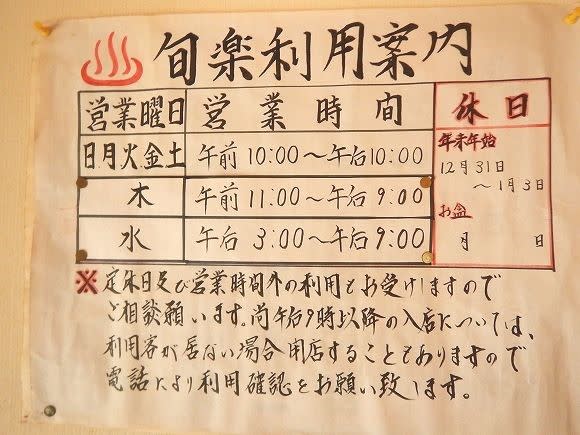 旬楽利用案内
営業曜日 営業時間 休日
日月火金土 午前10:00〜午后10:00
木 午前11:00〜午后9:00
水 午后3:00〜午后9:00
年末年始
12月31日
〜1月3日
お盆
月 日
※定休日及び営業時間外の利用もお受けしますので
ご相談願います。尚午后9時以降の入店については、
利用客が居ない場合閉店することもありますので
電話により利用確認をお願い致します。